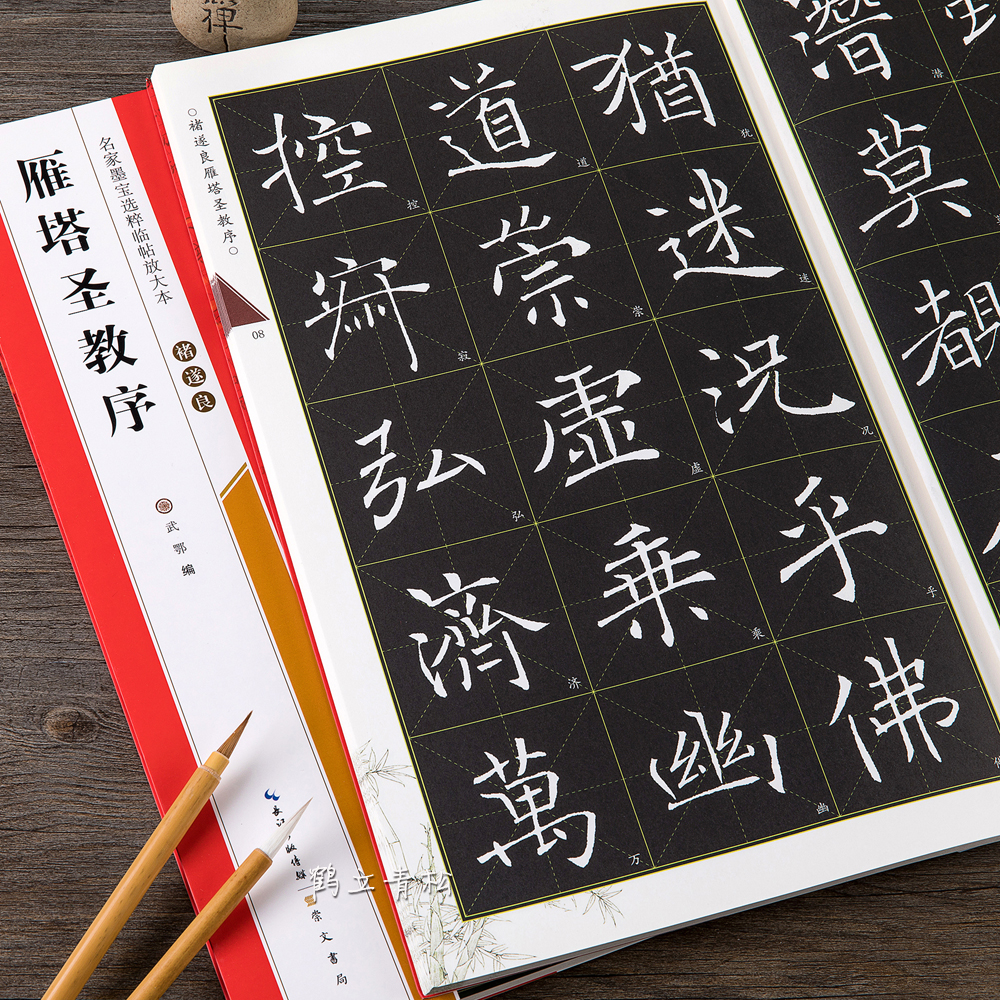 禪
名家墨宝选粹临帖放大本
雁塔圣教序
褚遂良
武鄂编
崇文書局
○褚遂良雁塔圣教序○
08
潛
莫
覩
潜
猶迷況乎佛
犹迷况乎
道崇虛乘幽
道崇虚乘幽
控寂弘濟萬
控寂弘济万
鹤文青松